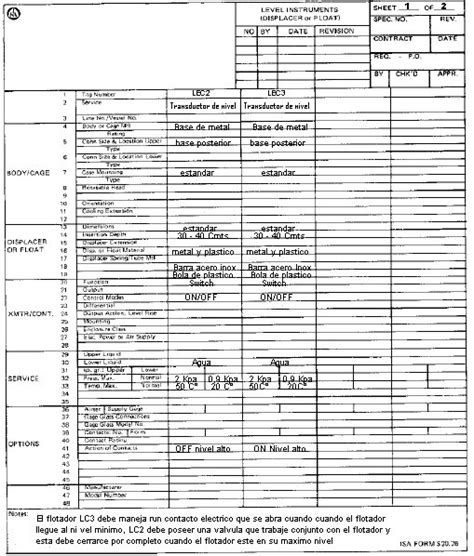 ISA
LEVEL INSTRUMENTS
(DISPLACER or FLOAT)
SHEET 1 OF 2
SPEC. NO. REV.
NO BY DATE REVISION
CONTRACT DATE
REQ. - P.O.
BY CHK'D APPR.
LBC2 LBC3
1 Tag Number
2 Service Transductor de nivel Transductor de nivel
3 Line No./Vessel No.
BODY/CAGE
4 Body or Cage Mtl Base de metal Base de metal
Rating
5 Conn Size & Location Upper base posterior base posterior
Type
6 Conn Size & Location Lower
Type
7 Case Mounting estandar estandar
Type
8
9
10 Orientation
11 Cooling Extension
12
DISPLACER
OR FLOAT
13 Dimensions estandar estandar
14 Insertion Depth 30 - 40 Cmts 30 - 40 Cmts
15 Displacer Extension
16 Disp. or Float Material metal y plastico metal y plastico
17 Displacer Spring/Tube Mtl
18 Barra acero inox Barra acero inox
19 Bola de plastico Bola de plastico
XMTR/CONT.
20 Function Switch Switch
21 Output
22 Control Modes ON/OFF ON/OFF
23 Differential
24 Output Action, Level Rise
25 Mounting
26 Enclosure Class
27 Elec. Power or Air Supply
28
SERVICE
29 Upper Liquid
30 Lower Liquid Agua Agua
31 Upper Lower
32 Press. Max. Normal 2 Kpa 0,9 Kpa 2 Kpa 0,9 Kpa
33 Temp. Max. Normal 50 Cº 20Cº 50 Cº 20Cº
34
35
OPTIONS
36 Airset Supply Gage
37 Gage Glass Connections
38 Gage Glass Model No.
39 Contacts: No. Form
40 Contact Rating
41 Action of Contacts OFF nivel alto ON Nivel alto
42
43
44
45
46 Manufacturer
47 Model Number
48
Notes:
El flotador LC3 debe maneja run contacto electrico que se abra cuando cuando el flotador
llegue al ni vel minimo, LC2 debe poseer una valvula que trabaje conjunto con el flotador y
esta debe cerrarce por completo cuando el flotador este en su maximo nivel
ISA FORM S20.26